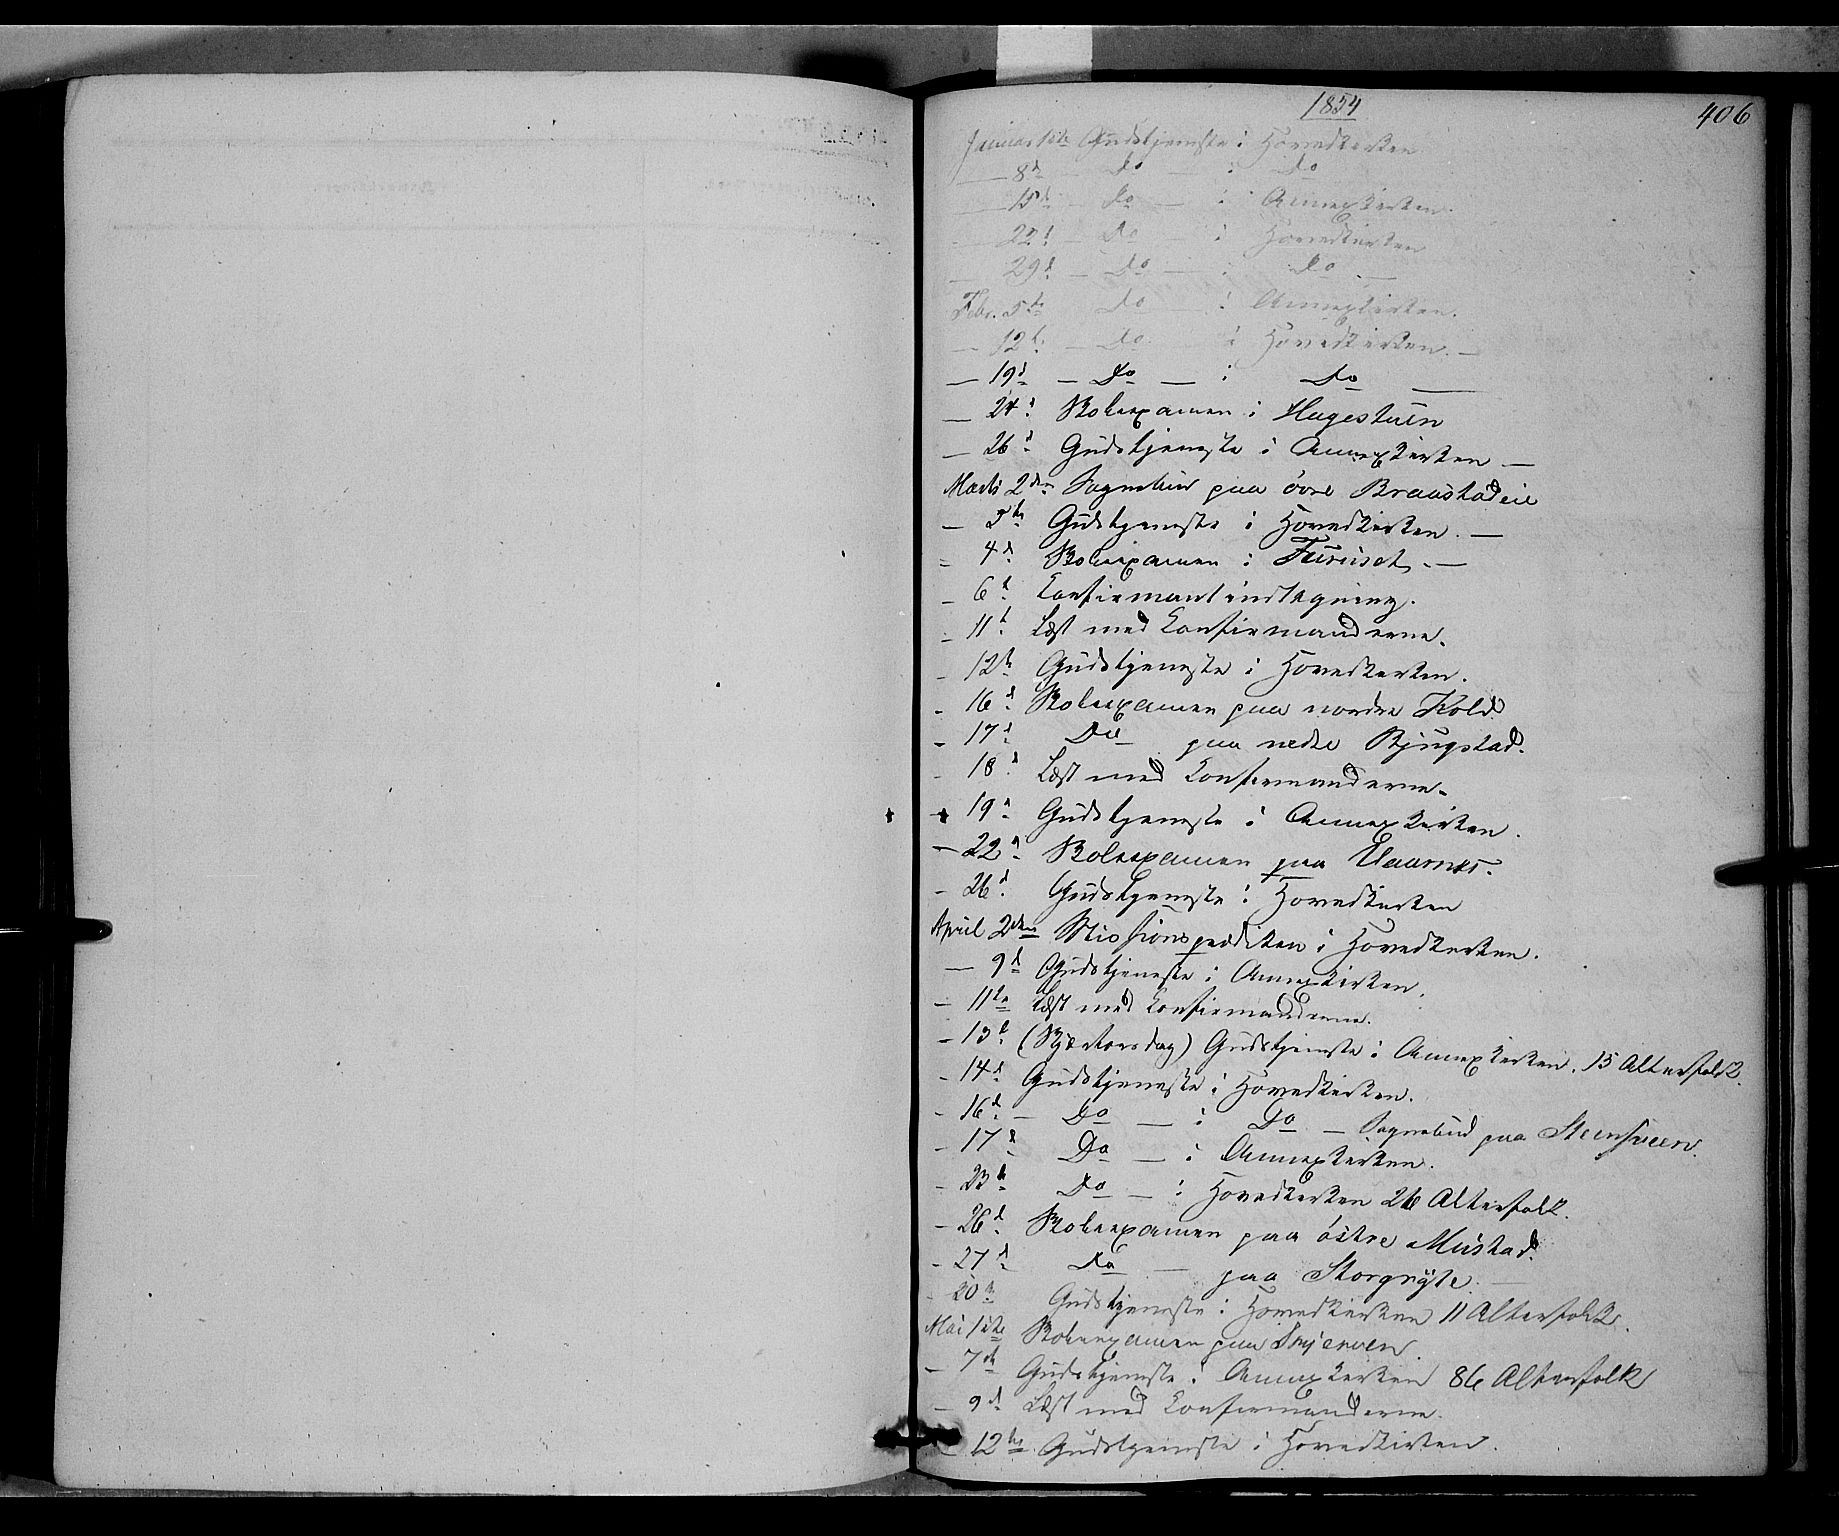 1854
406
Januar 1ste Gudstjeneste i Hovedkirken
— 8d — Do — i Do
— 15d — Do — i Annexkirken.
— 22d — Do — i Hovedkirken
— 29d — Do — i Do —
Febr. 5te Do i Annexkirken.
— 12t. — Do i Hovedkirken. —
— 19d — Do — i Do —
— 24d Skoleexamen i Hagestuen
— 26d Gudstjeneste i Annexkirken —
Marts 2den Sognebud paa övre Braastadeie
— 5te Gudstjeneste i Hovedkirken. —
— 4d Skoleexamen i Furuset. —
— 6d Confirmantindtegning.
— 11t Læst med Confirmanderne.
— 12te Gudstjeneste i Hovedkirken.
— 16d Skoleexamen paa nordre Kold.
— 17d Do paa nedre Bjugstad.
— 18d Læst med Confirmanderne.
— 19d Gudstjeneste i Annexkirken.
— 22d Skoleexamen paa
— 26d. Gudstjeneste i Hovedkirken
April 2den Missionsprædiken i Hovedkirken.
— 9d Gudstjeneste i Annexkirken.
— 11te Læst med Confirmanderne.
— 13t. (Skjærtorsdag) Gudstjeneste i Annexkirken. 15 Alterfolk.
— 14d Gudstjeneste i Hovedkirken.
— 16d — Do — i Do — Sognebud paa
— 17d Do — i Annexkirken.
— 23d Do — i Hovedkirken 26 Alterfolk.
— 26d Skoleexamen paa östre Mustad.
— 27d Do — paa Storgryte. —
— 30te Gudstjeneste i Hovedkirken 11 Alterfolk.
Mai 1ste Skoleexamen paa
— 7de Gudstjeneste i Annexkirken 86 Alterfolk
— 9d Læst med Confirmanderne.
— 12te Gudstjeneste i Hovedkirken.